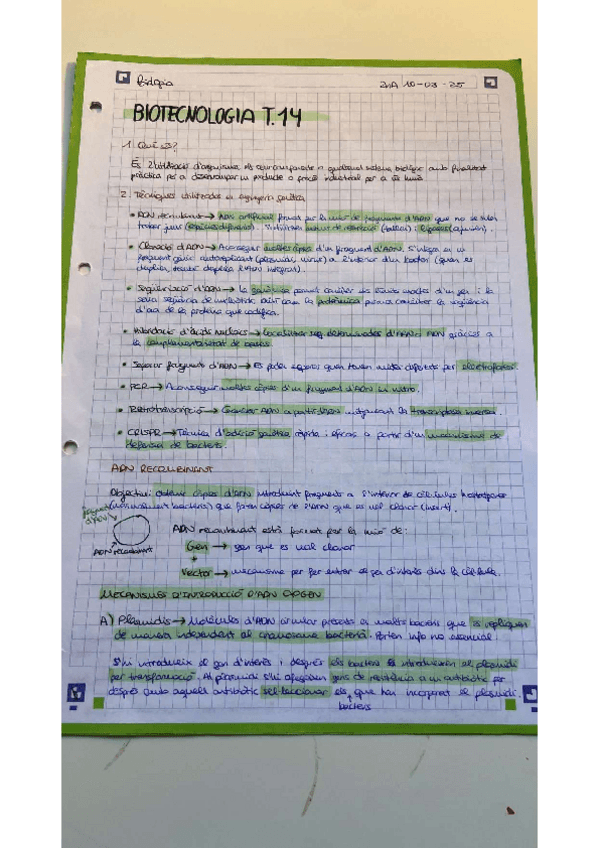 Biologia 2nA 10-03-25
BIOTECNOLOGIA T.14
1. Què és?
És l'utilització d'organismes vius o qualsevol sistema biològic amb finalitat
pràctica per a desenvolupar un producte o procés industrial per a
2. Tècniques utilitzades en enginyeria genètica
• ADN recombinant → ADN artificial format per la unió de fragments d'ADN que no se solen
trobar junts. S'utilitzen de restricció (tallen) i lligases (ajunten).
• Clonació d'ADN → Aconseguir moltes còpies d'un fragment d'ADN. S'integra en un
fragment gènic autoreplicant (plasmidi, virus) a l'interior d'un bacteri (quan es
duplica també duplica l'ADN integrat).
• Seqüenciació d'ADN → La permet conèixer els d'un gen i la
seva seqüència de nucleòtids així com la proteòmica permet conèixer la seqüència
d'aa de la proteïna que codifica.
• Hibridació d'àcids nucleics → Localitzar seq determinades d'ADN o ARN gràcies a
la complementarietat de bases.
• Separar fragments d'ADN → Es poden separar quan tenen mides diferents per electroforesi.
• PCR → Aconseguir moltes còpies d'un fragment d'ADN in vitro.
• Retrotranscripció → Generar ADN a partir d'ARN mitjançant la transcriptasa inversa.
• CRISPR → Tècnica d'edició genètica ràpida i eficaç a partir d'un mecanisme de
defensa de bacteris.
ADN RECOMBINANT
Objectiu: obtenir còpies d'ADN introduint fragments a l'interior de cèl·lules hostatgeres
(normalment bacteris) que faran còpies de l'ADN que es vol clonar (insert).
fragment
d'ADN
ADN recombinant
ADN recombinant està format per la unió de:
Gen → gen que es vol clonar
+
Vector → mecanisme per fer entrar el gen d'interès dins la cèl·lula.
MECANISMES D'INTRODUCCIÓ D'ADN EXOGEN
A) Plasmidis → Molècules d'ADN circular presents en molts bacteris que es repliquen
de manera independent al cromosoma bacterià. Porten info no essencial.
S'hi introdueix el gen d'interès i després els bacteris hi introdueixen el plasmidi
per transformació. Al plasmidi s'hi afegeixen gens de resistència a un antibiòtic per
després amb aquell antibiòtic seleccionar els que han incorporat el plasmidi.
bacteris